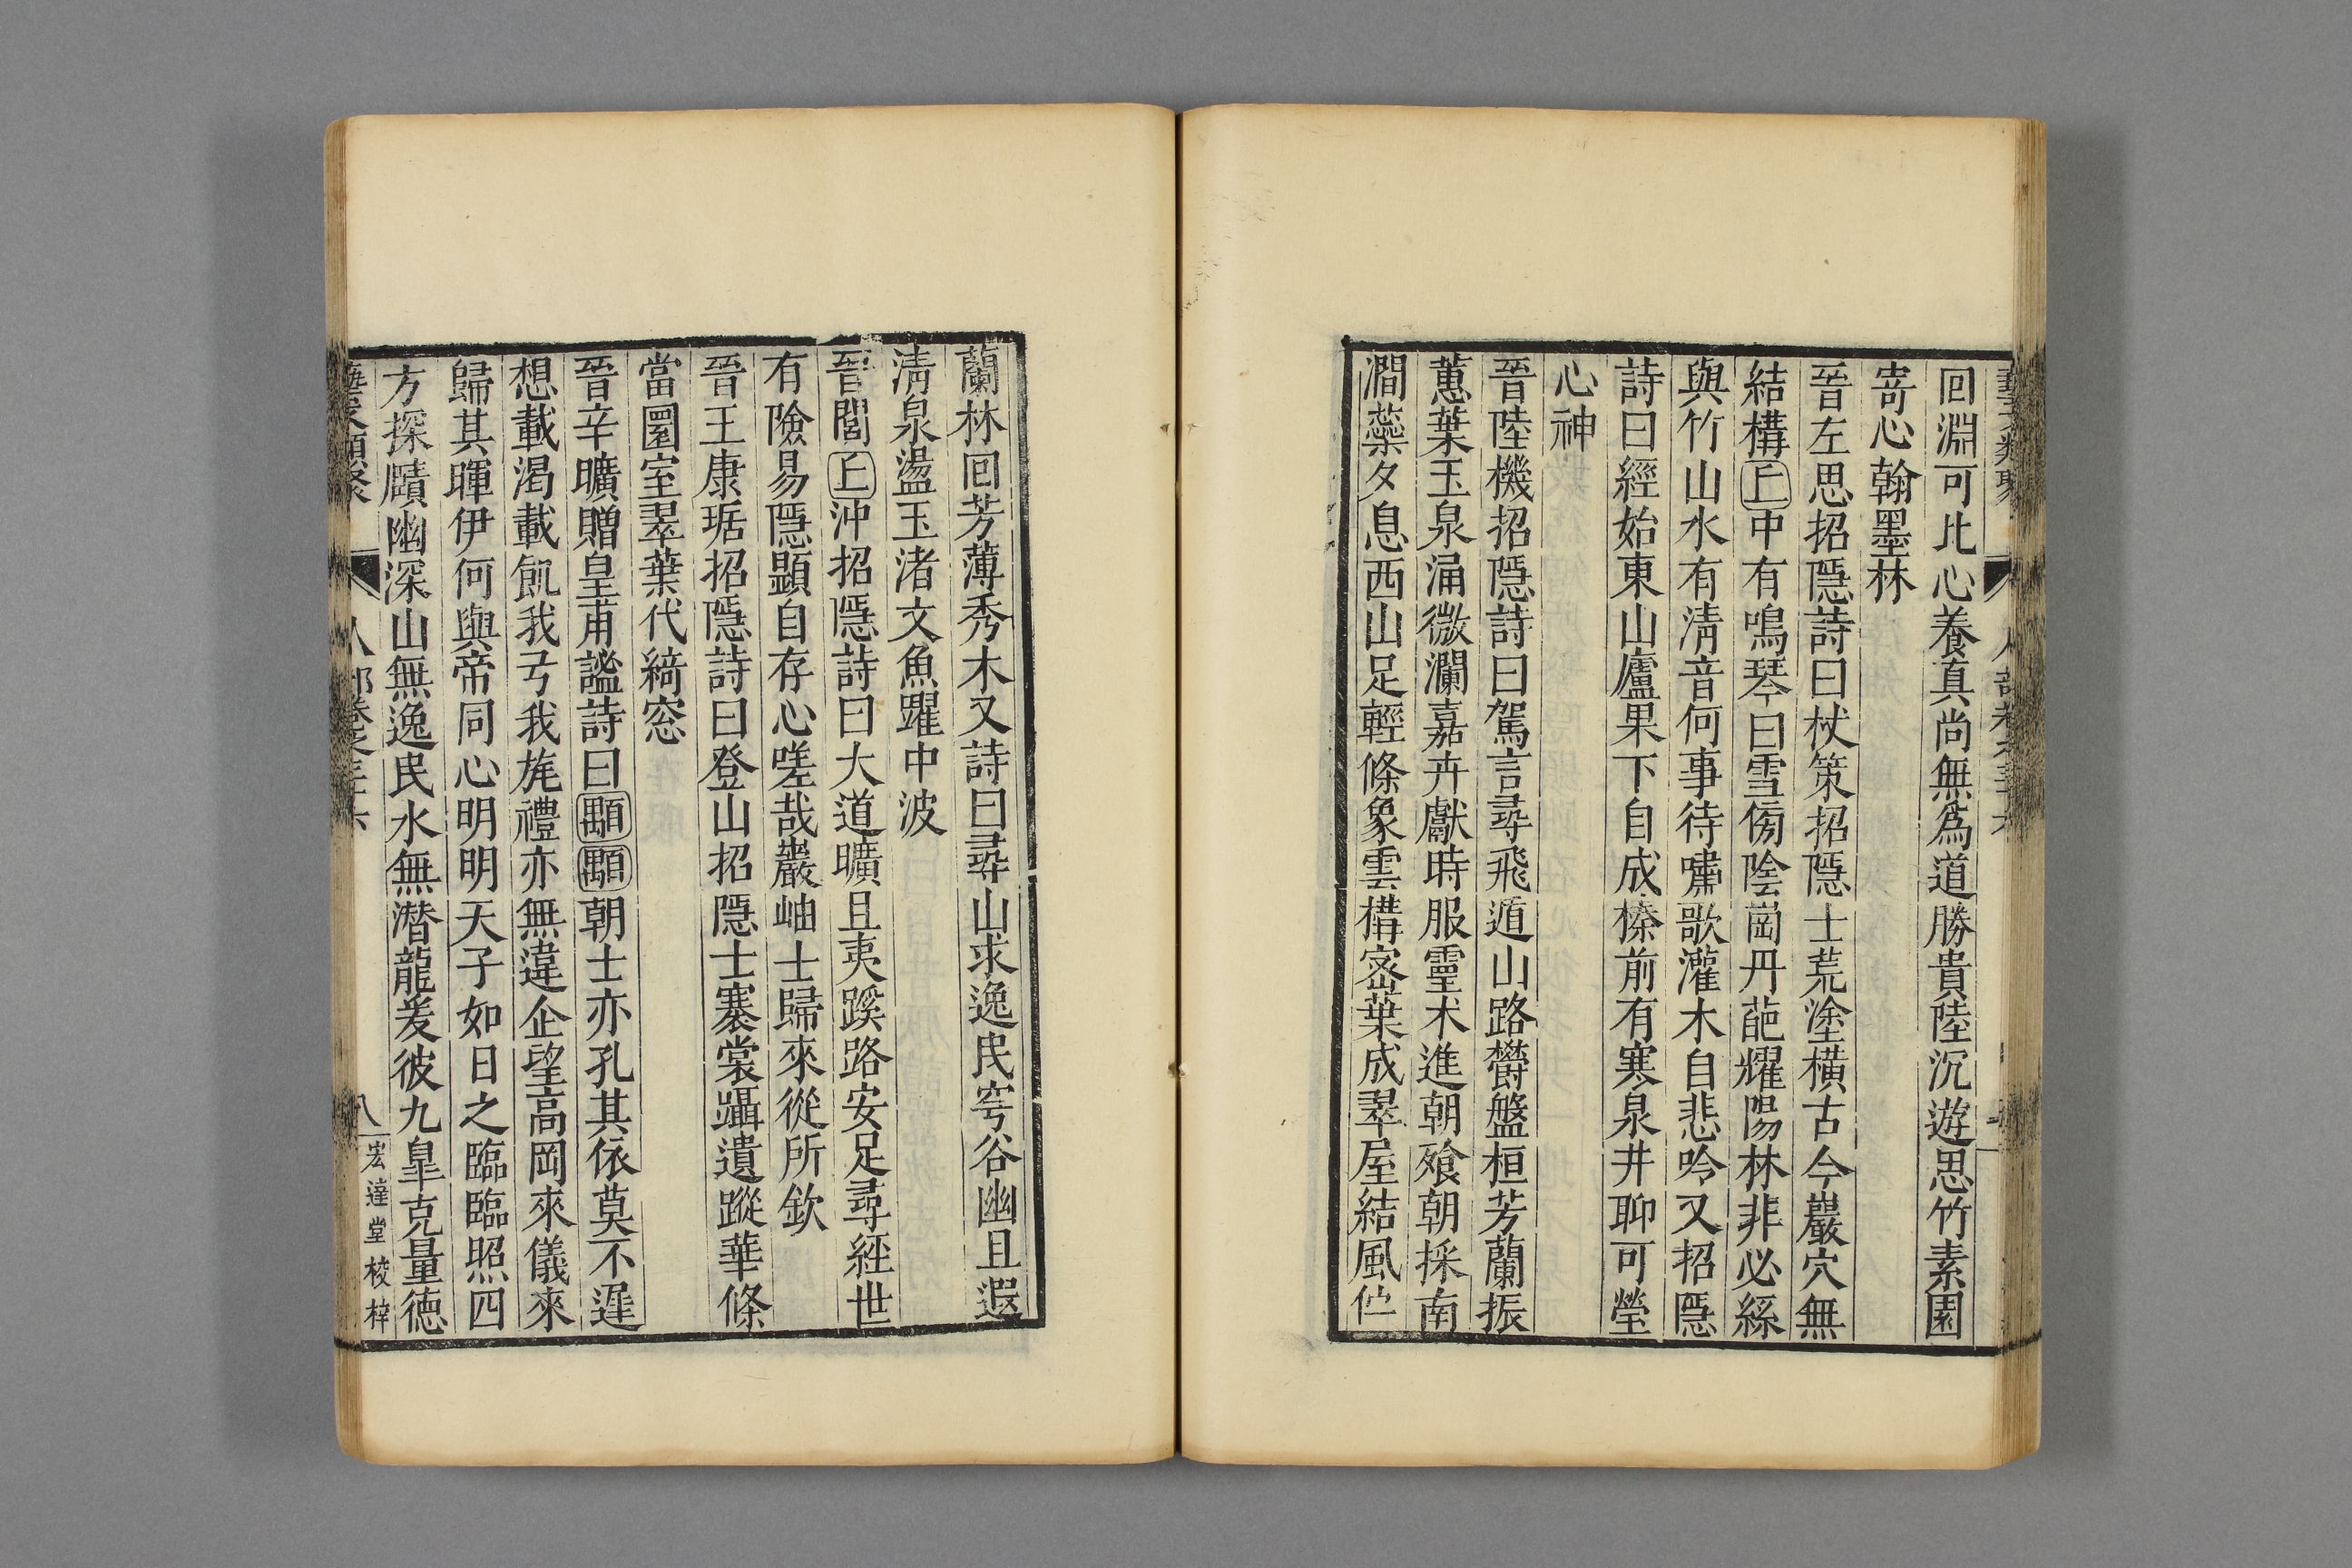 回淵可比心養真尚無爲道勝貴陸沉遊思竹素園
寄心翰墨林
晉左思招隱詩曰杖策招隱士荒塗橫古今巖穴無
結構上中有鳴琴曰雪傍陰崗丹葩耀陽林非必絲
與竹山水有淸音何事待嘯歌灌木自悲吟又招隱
詩曰經始東山廬果下自成榛前有寒泉井聊可瑩
心神
晉陸機招隱詩曰駕言尋飛遁山路欎盤桓芳蘭振
蕙葉玉泉涌微瀾嘉卉獻時服靈术進朝飱朝採南
澗蘂夕息西山足輕條象雲構宻葉成翠屋結風伫
蘭林回芳薄秀木又詩曰尋山求逸民穹谷幽且遐
淸泉盪玉渚文魚躍中波
晉閭上沖招隱詩曰大道曠且夷蹊路安足尋經世
有險易隱顯自存心嗟哉巖岫士歸來從所欽
晉王康琚招隱詩曰登山招隱士褰裳躡遺蹤華條
當圜室翠葉代綺窓
晉辛曠贈皇甫謐詩曰顒顒朝士亦孔其依莫不遑
想載渴載飢我弓我旄禮亦無違企望高岡來儀來
歸其暉伊何與帝同心明明天子如日之臨臨照四
方探賾幽深山無逸民水無潛龍爰彼九臯克量徳
八
宏達堂校梓